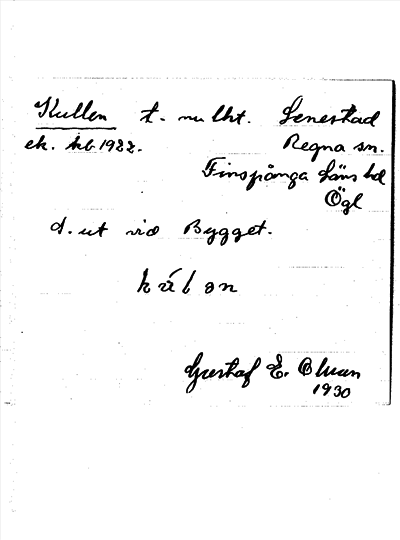 Kullen t. nu lht. Senestad
ek. kb 1922. Regna sn.
Finspånga läns hd
Ögl
d. ut vid Bygget.
Gustaf E. Olman
1930